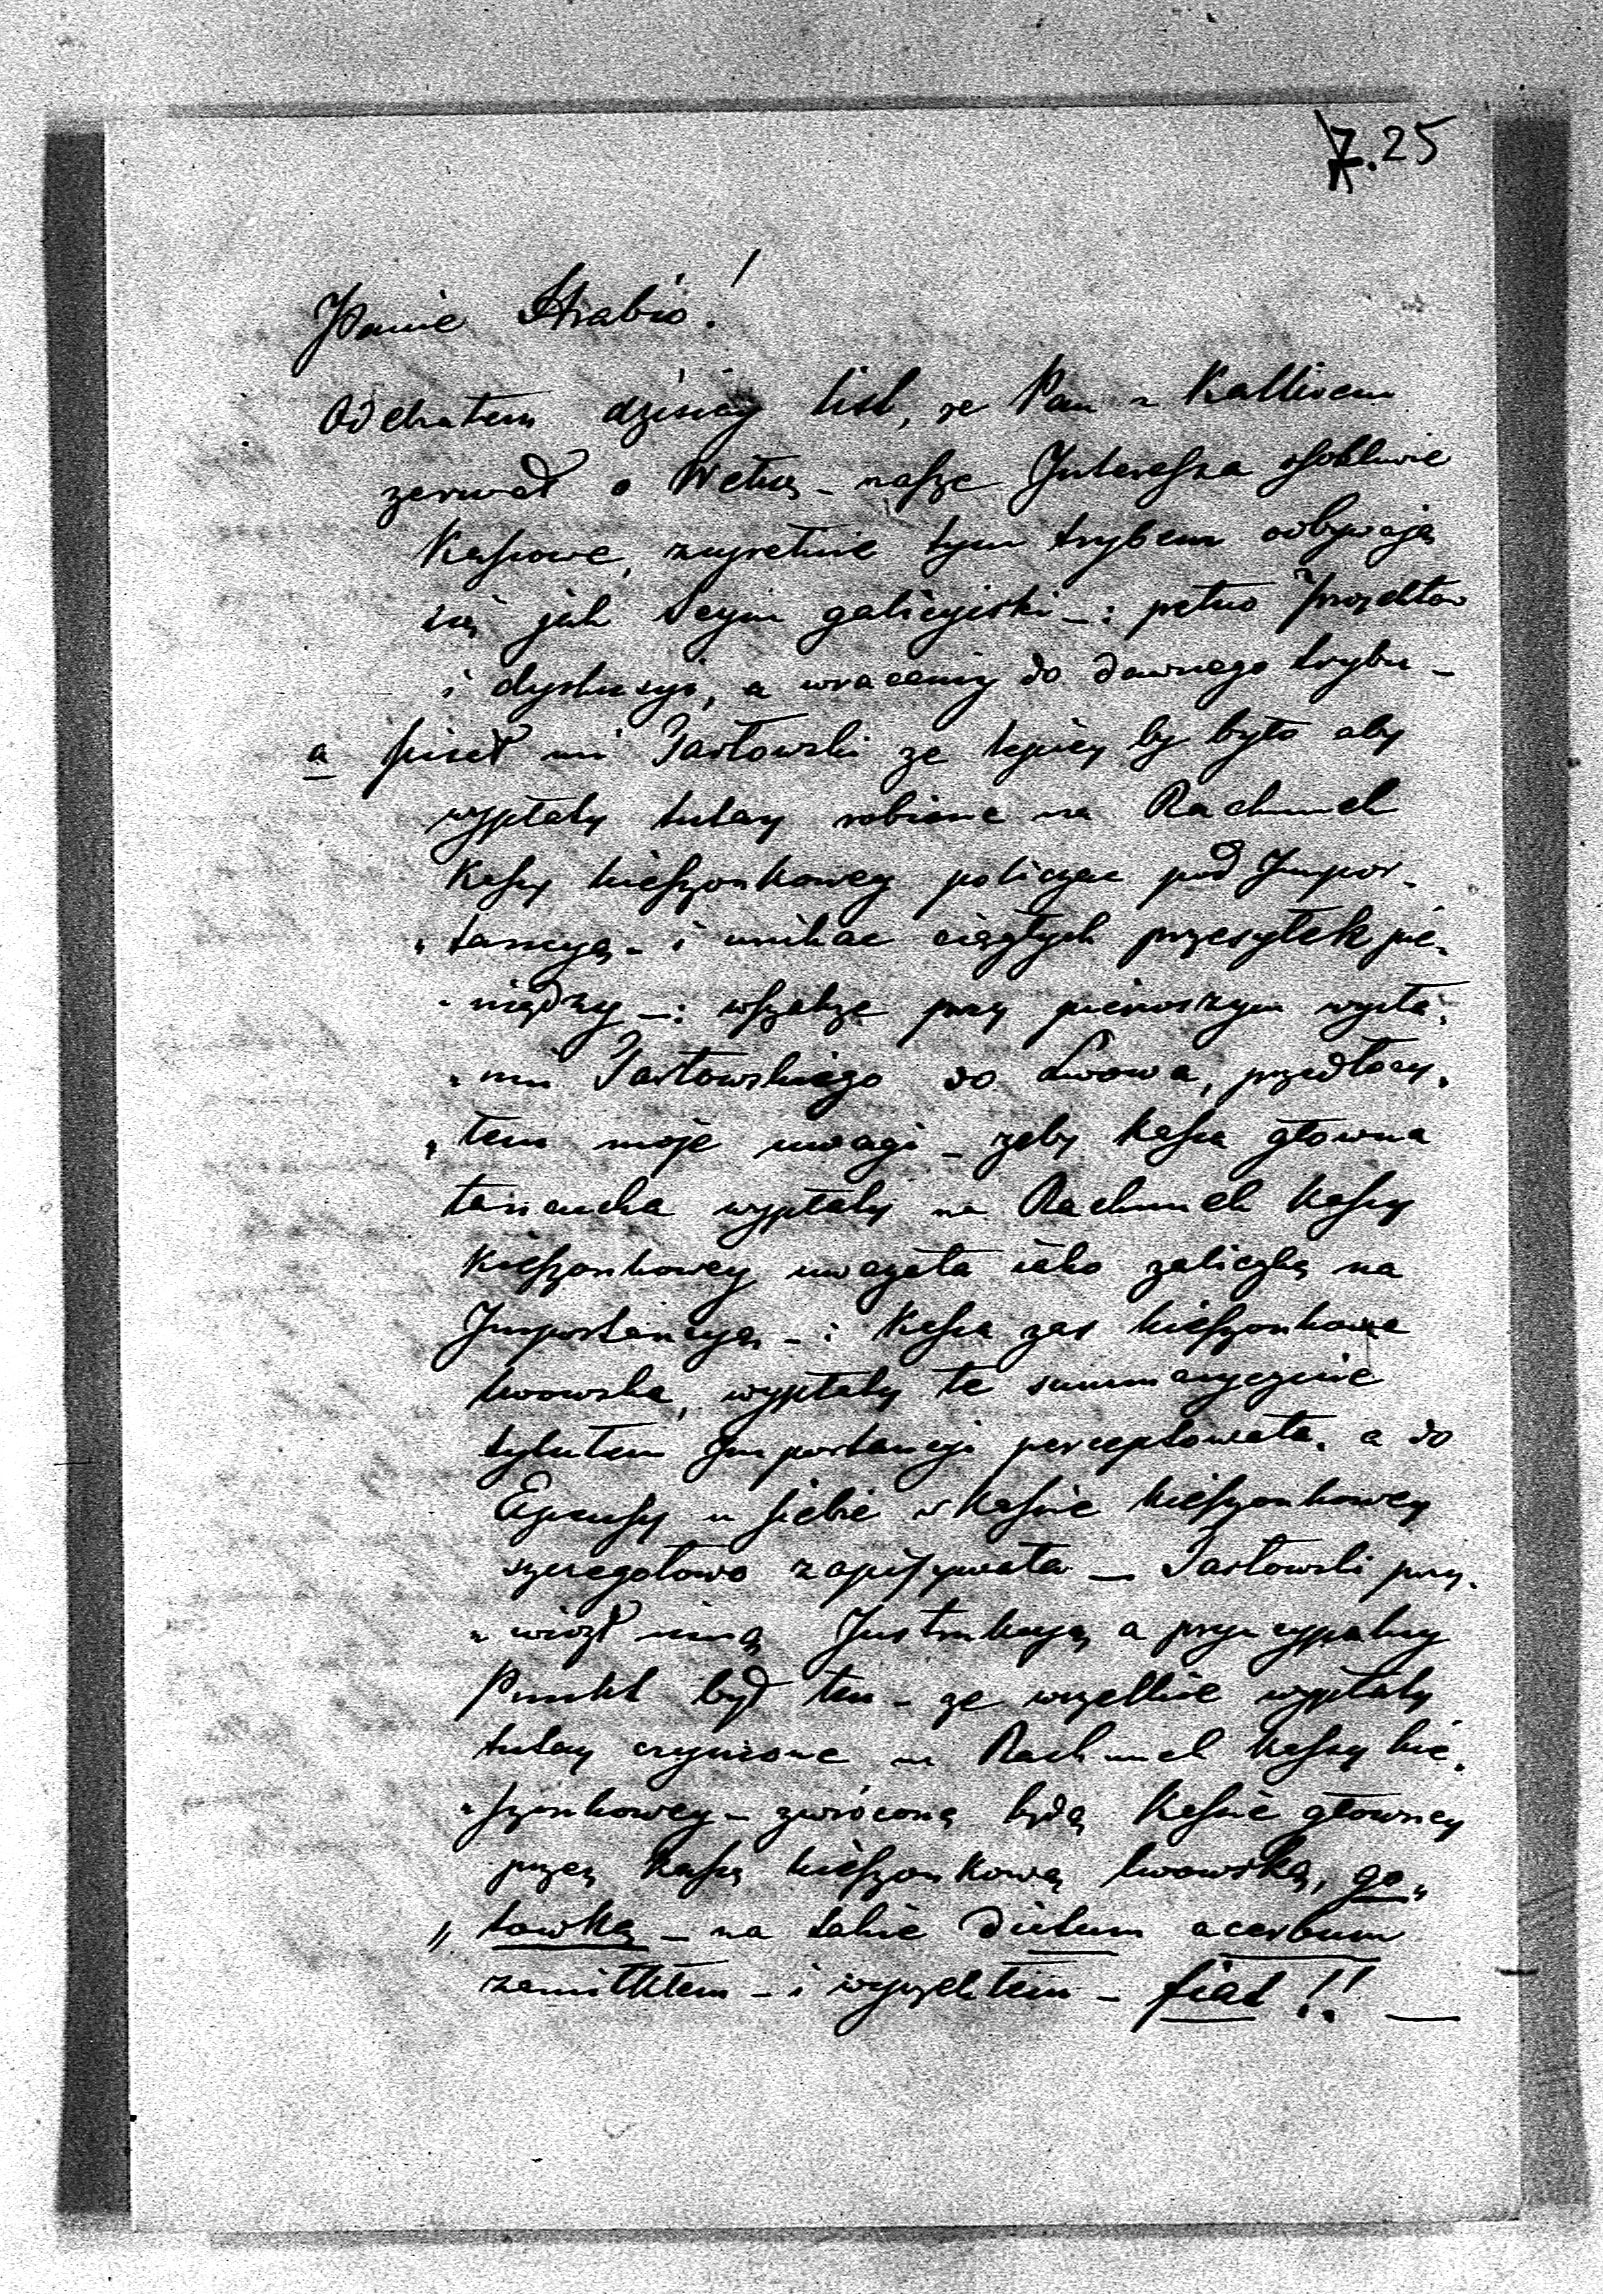 7.25
Panie Hrabio!
Odebrałem dzisiay list, że Pan z Kallirem
zerwał o Wełnę - nasze Interessa osobliwie
Kassowe, zupełnie tym trybem odbywają
się jak Seym galicyiski -: pełno Projektow
i dyskusyi, a wracamy do dawnego trybu -
a pisał mi Pasłowski że lepiey by było aby
wypłaty tutay robione na Rachunek
Kassy kieszonkowey policzac pod Impor-
"tancyą - i unikac ciągłych przesyłek pie-
"niędzy -: wszakże przy pierwszym wysła-
"niu Pasłowskiego do Lwowa, przedłoży-
"łem moje uwagi - żeby Kassa głowna
łancucka wypłaty na Rachunek Kassy
Kieszonkowey uważała iako zaliczkę na
Importancyą -: Kassa zas kieszonkowa
lwowska, wypłaty te summarycznie
tytułem Importancyi perceptowała, a do
Expensy u siebie w Kassie kieszonkowey
szczegołowo zapisywała - Pasłowski przy-
"wiozł inną Instrukcyą a pryncypalny
Punkt był ten - że wszelkie wypłaty
tutay czynione na Rachunek Kassy kie-
"szonkowey - zwrócone będą Kassie głowney
przez Kassę kieszonkową lwowską, go"
"towką - na takie dictum acerbum
zamilkłem - i wyrzekłem - fiat!! -